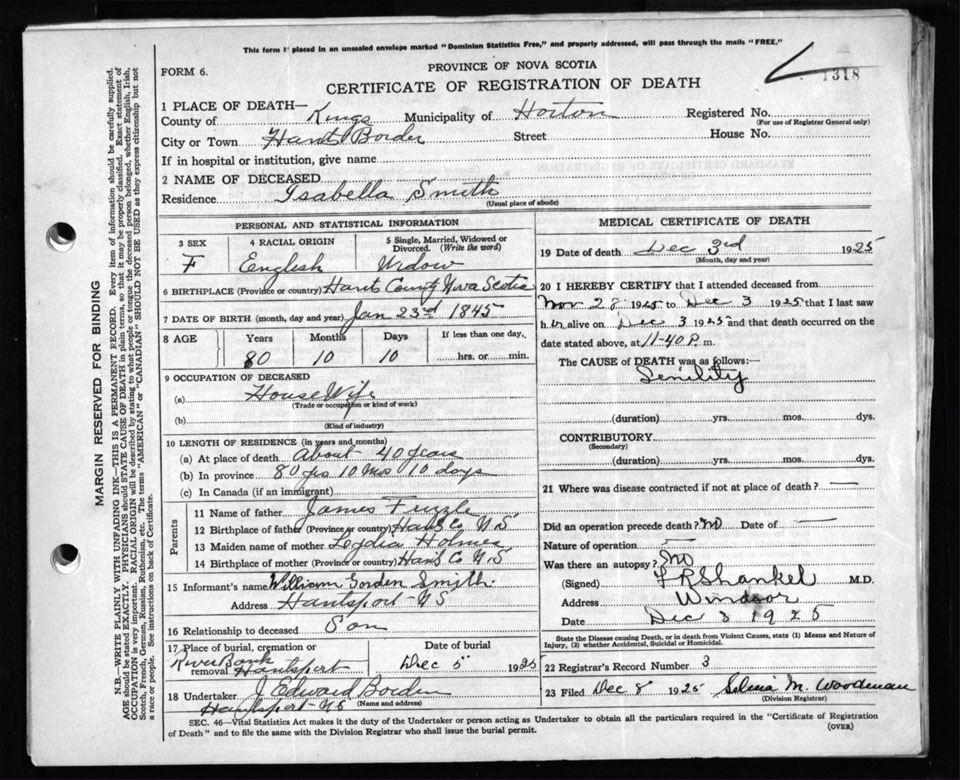 This form if placed in an unsealed envelope marked "Dominion Statistics Free," and properly addressed, will pass through the mails "FREE."
1318
FORM 6.
PROVINCE OF NOVA SCOTIA
CERTIFICATE OF REGISTRATION OF DEATH
1 PLACE OF DEATH—
County of Kings Municipality of Horton Registered No.
(For use of Registrar General only)
City or Town Hants Border Street House No.
If in hospital or institution, give name
2 NAME OF DECEASED Isabella Smith
Residence (Usual place of abode)
PERSONAL AND STATISTICAL INFORMATION
3 SEX F
4 RACIAL ORIGIN English
5 Single, Married, Widowed or Divorced. (Write the word) Widow
6 BIRTHPLACE (Province or country) Hants County Nova Scotia
7 DATE OF BIRTH (month, day and year) Jan 23rd 1845
8 AGE Years Months Days If less than one day,
80 10 10 hrs. or min.
9 OCCUPATION OF DECEASED
(a) House Wife
(Trade or occupation or kind of work)
(b)
(Kind of industry)
10 LENGTH OF RESIDENCE (in years and months)
(a) At place of death About 40 years
(b) In province 80 yrs 10 mos 10 days
(c) In Canada (if an immigrant)
Parents
11 Name of father James
12 Birthplace of father (Province or country) Hants Co N.S
13 Maiden name of mother Lydia Holmes
14 Birthplace of mother (Province or country) Hants Co N.S
15 Informant's name William Gorden Smith.
Address Hantsport - NS
16 Relationship to deceased Son
17 Place of burial, cremation or removal River Bank Hantsport
Date of burial Dec 5 1925
18 Undertaker J Edward Borden
(Name and address)
Hantsport - NS
MEDICAL CERTIFICATE OF DEATH
19 Date of death Dec 3rd 1925
(Month, day and year)
20 I HEREBY CERTIFY that I attended deceased from
Nov 28 1925 to Dec 3 1925 that I last saw
h er alive on Dec 3 1925 and that death occurred on the
date stated above, at 11-40 P. m.
The CAUSE of DEATH was as follows:—
Senility
(duration) yrs. mos. dys.
CONTRIBUTORY
(Secondary)
(duration) yrs. mos. dys.
21 Where was disease contracted if not at place of death? —
Did an operation precede death? no Date of —
Nature of operation —
Was there an autopsy? no
(Signed) F R Shankel M.D.
Address Windsor
Date Dec 3 1925
State the Disease causing Death, or in death from Violent Causes, state (1) Means and Nature of Injury, (2) whether Accidental, Suicidal or Homicidal.
22 Registrar's Record Number 3
23 Filed Dec 8 1925 M. Woodman
(Division Registrar)
SEC. 46—Vital Statistics Act makes it the duty of the Undertaker or person acting as Undertaker to obtain all the particulars required in the "Certificate of Registration
of Death" and to file the same with the Division Registrar who shall issue the burial permit.
(OVER)
MARGIN RESERVED FOR BINDING
N.B.—WRITE PLAINLY WITH UNFADING INK—THIS IS A PERMANENT RECORD. Every item of information should be carefully supplied.
AGE should be stated EXACTLY. PHYSICIANS should STATE CAUSE OF DEATH in plain terms, so that it may be properly classified. Exact statement of
OCCUPATION is very important. RACIAL ORIGIN will be described by stating to what people or tongue the deceased person belonged, whether English, Irish,
Scotch, French, German, Russian, Ruthenian, etc. The terms "AMERICAN" or "CANADIAN" SHOULD NOT BE USED as they express citizenship but not
a race or people. See instructions on back of Certificate.